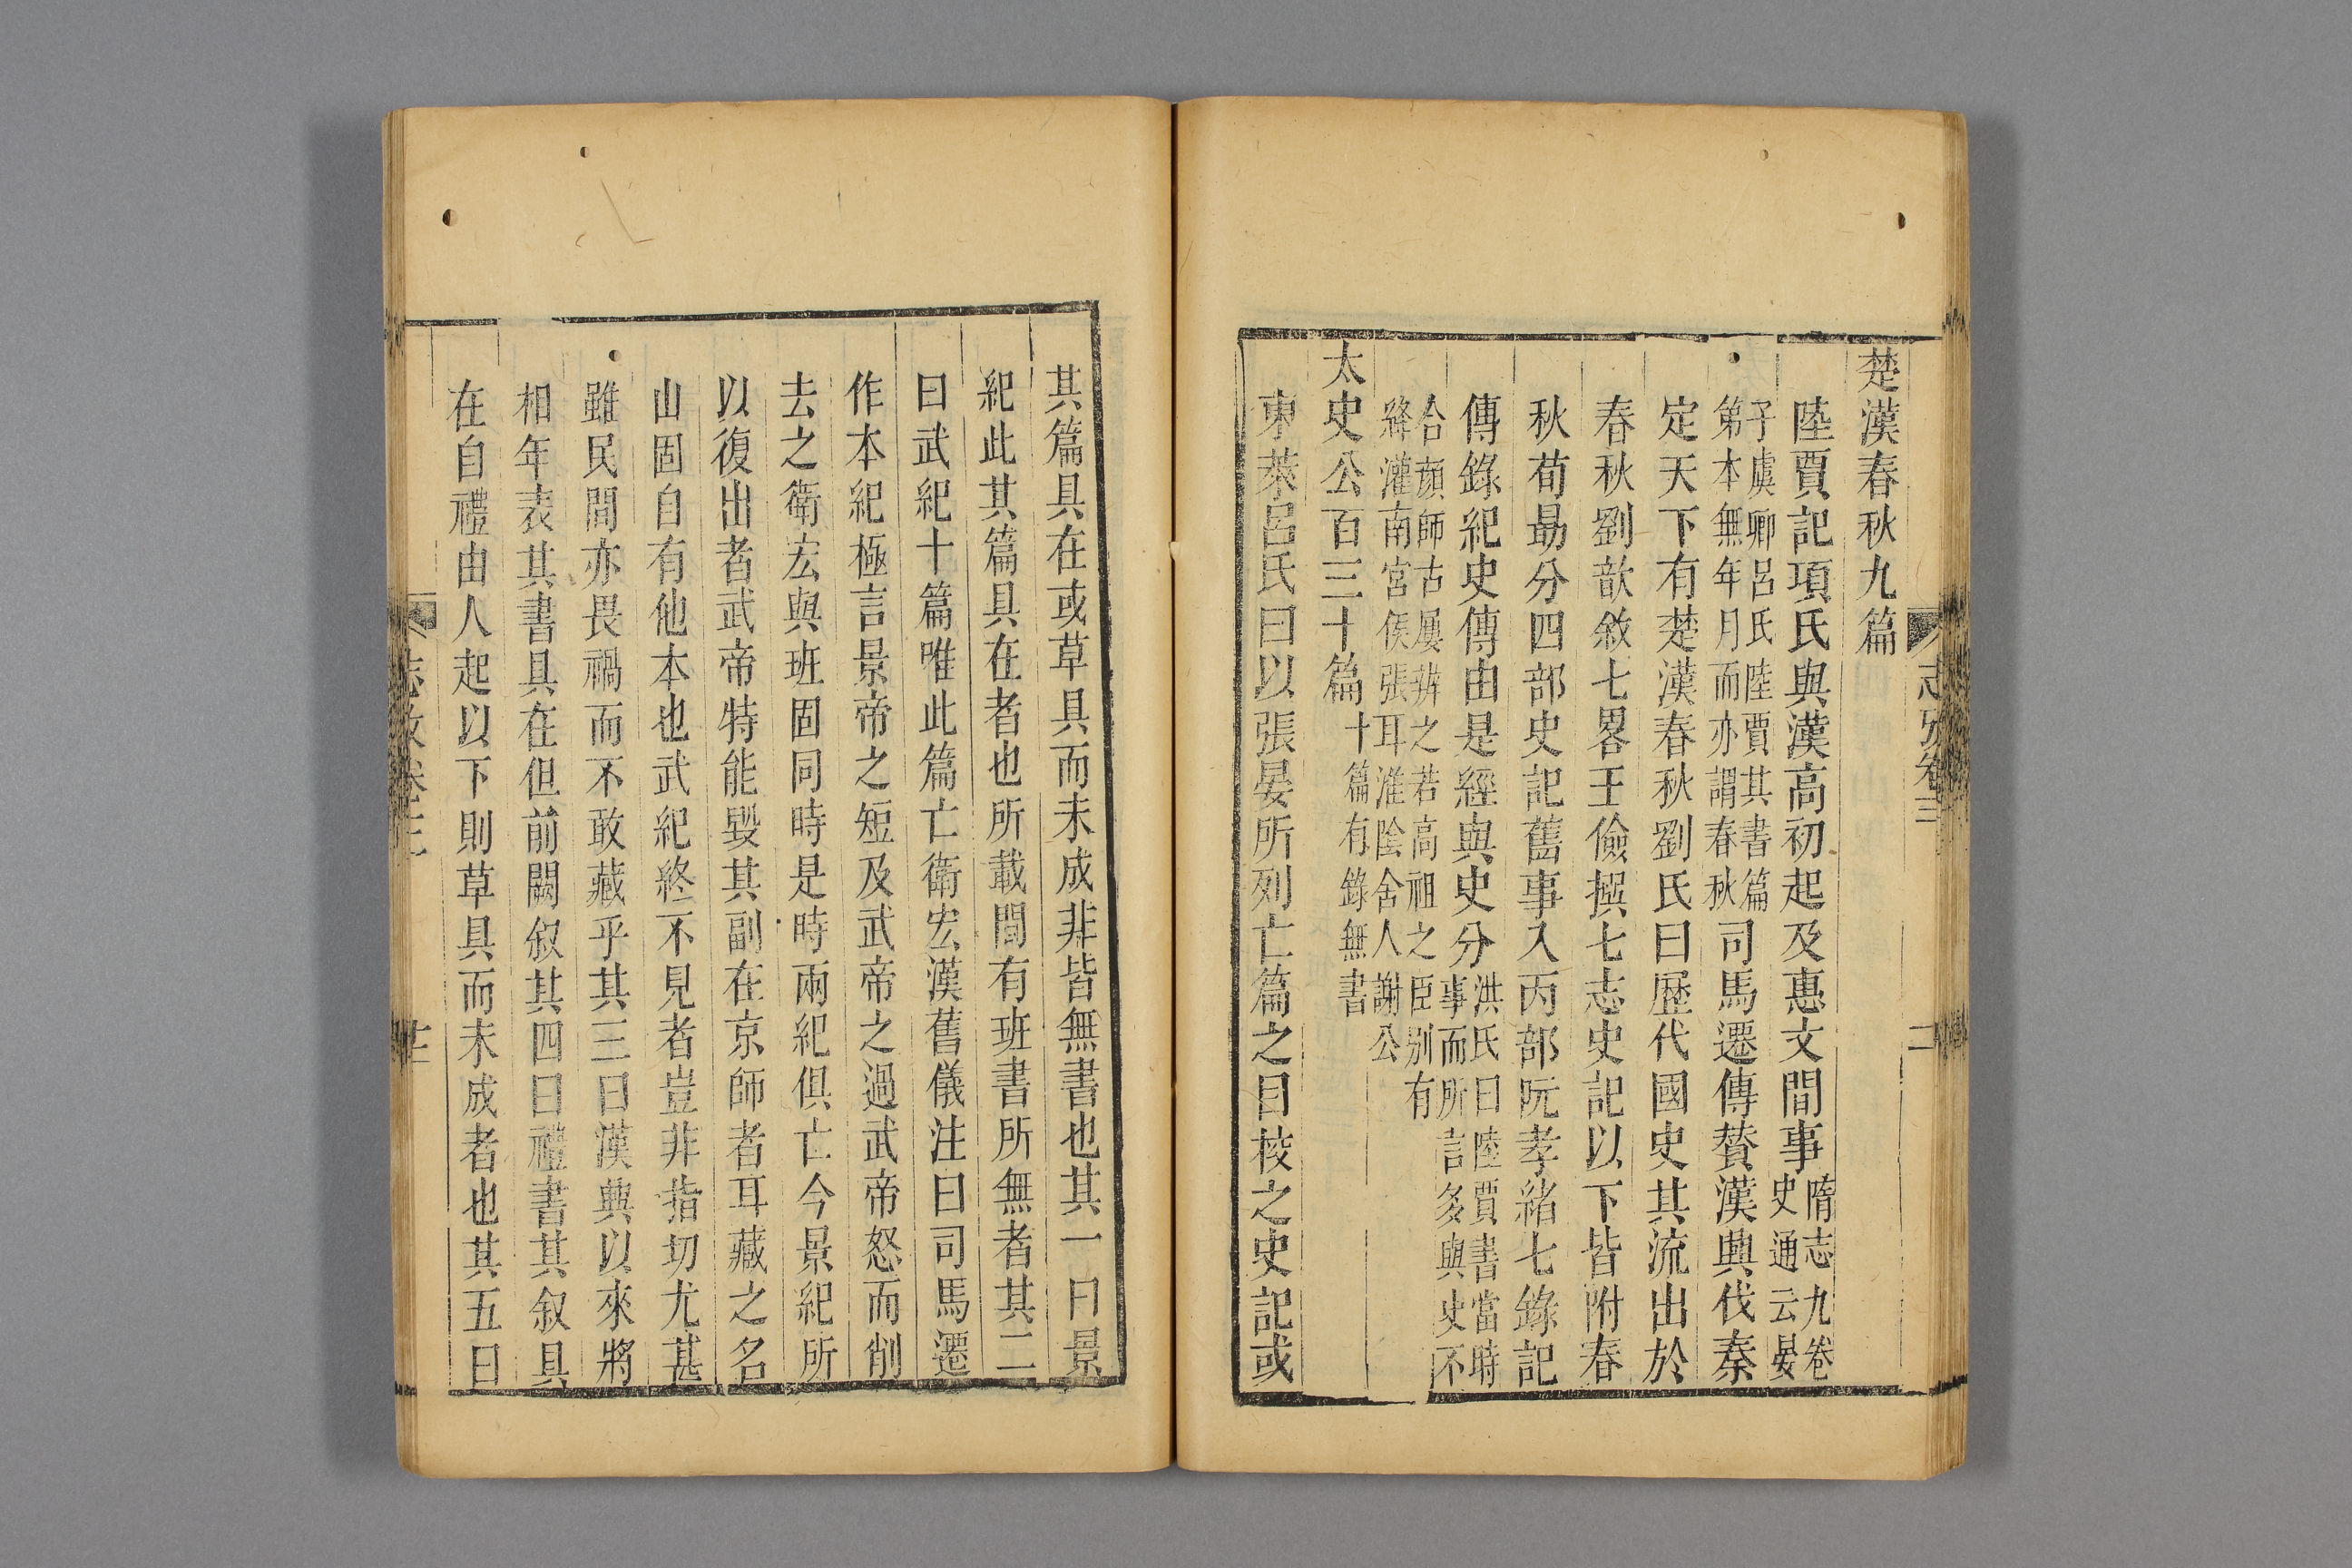 楚漢春秋九篇
陸賈記項氏與漢高初起及惠文間事隋志九卷史通云晏
子虞卿呂氏陸賈其書篇第本無年月而亦謂春秋司馬遷傳贊漢興伐秦
定天下有楚漢春秋劉氏曰歷代國史其流出於
春秋劉歆敘七畧王儉撰七志史記以下皆附春
秋荀勗分四部史記舊事入丙部阮孝緒七錄記
傳錄紀史傳由是經與史分洪氏曰陸賈書當時事而所言多與史不
合顔師古屢辨之若高祖之臣別有絳灌南宮侯張耳淮陰舍人謝公
太史公百三十篇十篇有錄無書
東萊呂氏曰以張晏所列亡篇之目校之史記或
其篇具在或草具而未成非皆無書也其一曰景
紀此其篇具在者也所載間有班書所無者其二
曰武紀十篇唯此篇亡衛宏漢舊儀注曰司馬遷
作本紀極言景帝之短及武帝之過武帝怒而削
去之衛宏與班固同時是時兩紀俱亡今景紀所
以復出者武帝特能毀其副在京師者耳藏之名
山固自有他本也武紀終不見者豈非指切尤甚
雖民間亦畏禍而不敢藏乎其三曰漢興以來將
相年表其書具在但前闕叙其四曰禮書其叙具
在自禮由人起以下則草具而未成者也其五曰